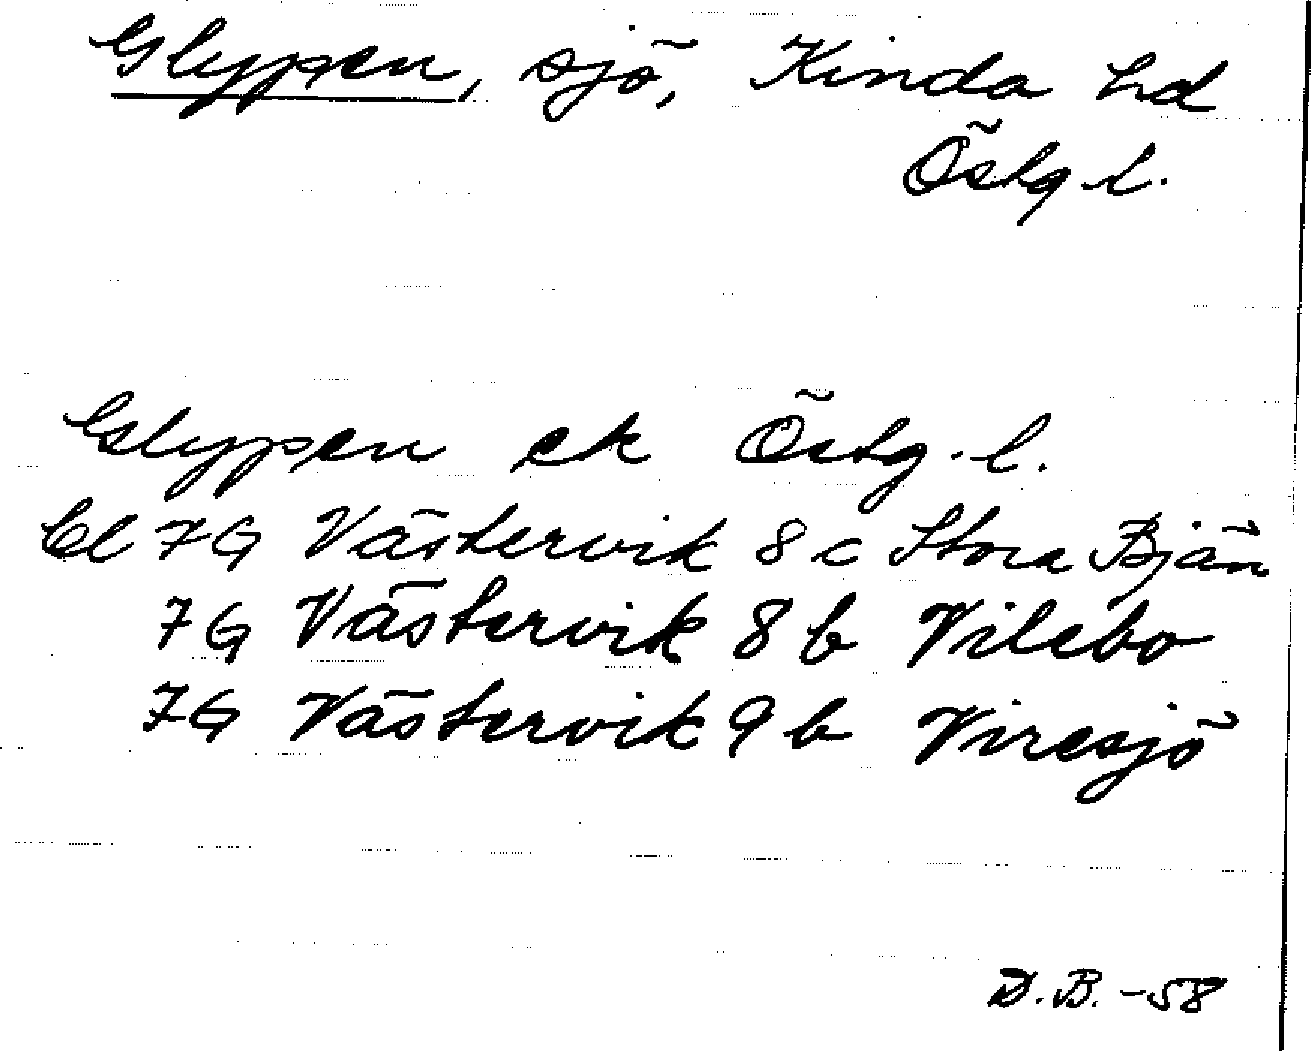 Glypen, sjö, Kinda hd
Östg. l.
Glypen ek Östg. l.
Bl 7G Västervik 8 c Stora Bjän
7G Västervik 8 b Vilebo
7G Västervik 9 b Viresjö
D. B. -58